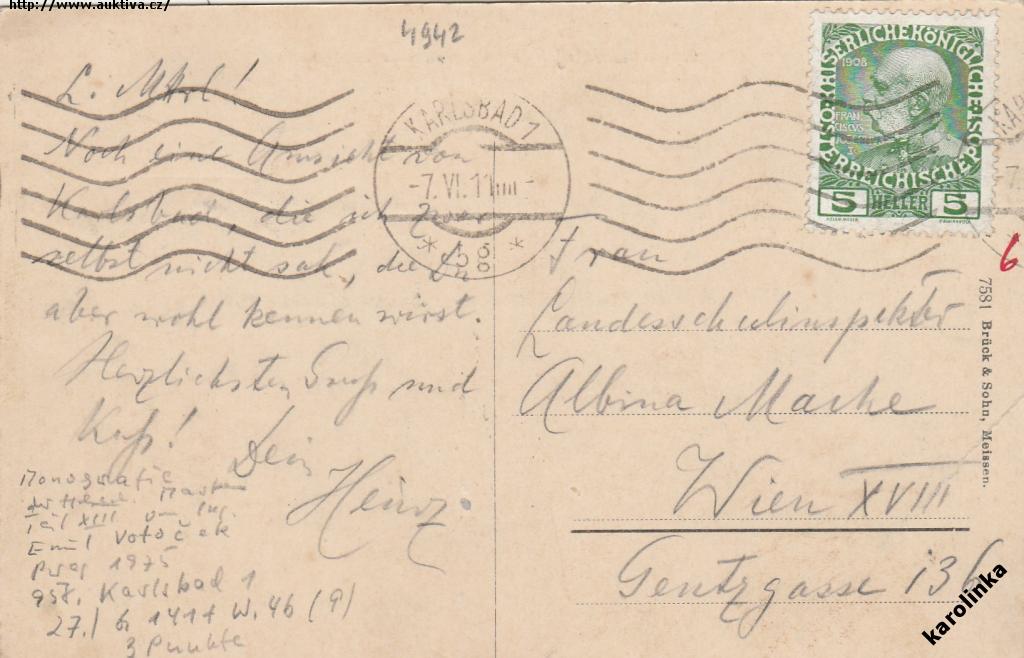 http://www.auktiva.cz/
4942
L. Marl!
Noch eine Ansicht von
Karlsbad, die ich zwar
selbst nicht sah, die Du
aber wohl kennen wirst.
Herzlichsten Gruß und
Kuß!
Dein
Heinz.
Monografie
Teil XIII von Ing.
Emil Votoček
Prag 1975
957. Karlsbad 1
27./6 1911 W. 46 (9)
3 Punkte
KARLSBAD 1
-7.VI.11
KAISERLICHEKÖNIGLICHE
ÖSTERREICHISCHE POST
1908
FRAN
CISCUS
5 HELLER 5
6
Frau
Landesschulinspektor
Albina Mache
Wien XVIII
Gentzgasse 136
7581 Brück & Sohn, Meissen.
karolinka